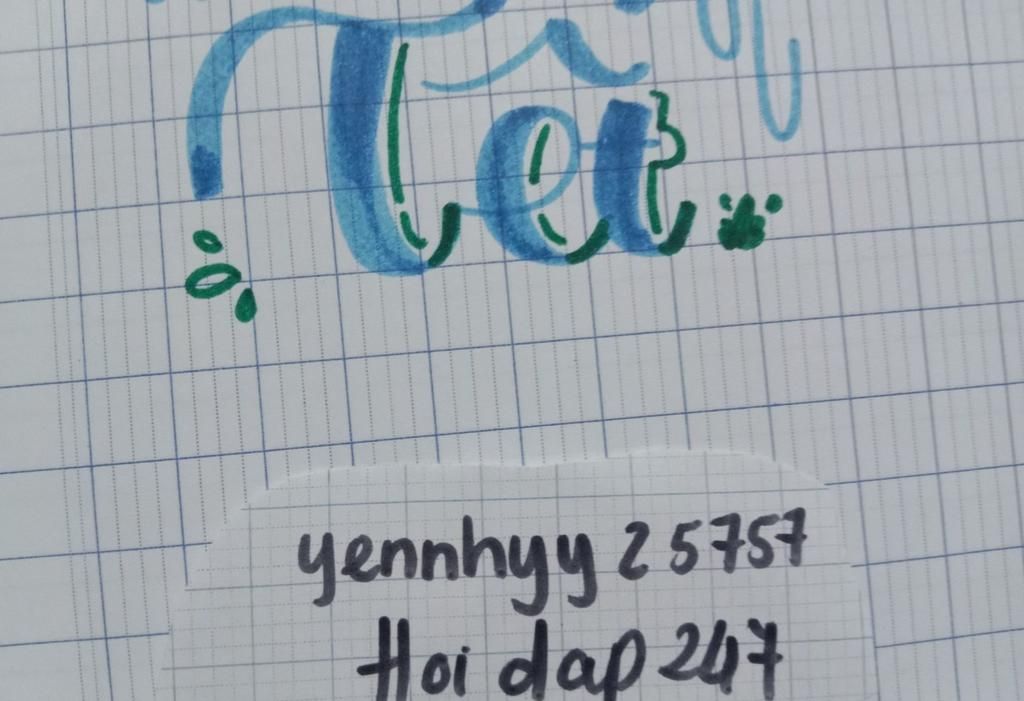 Tet
yennhyy 25757
Hoi dap 247